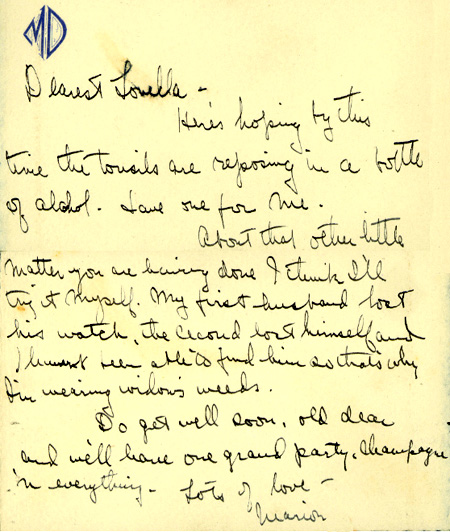 MD
Dearest Louella -
Here's hoping by this
time the tonsils are reposing in a bottle
of alchol. Save one for me.
About that other little
matter you are having done I think I'll
try it myself. My first husband lost
his watch, the second lost himself and
I haven't been able to find him so that's why
I'm wearing widow's weeds.
Do get well soon, old dear
and we'll have one grand party, Champagne
'n everything - Lots of love -
Marion